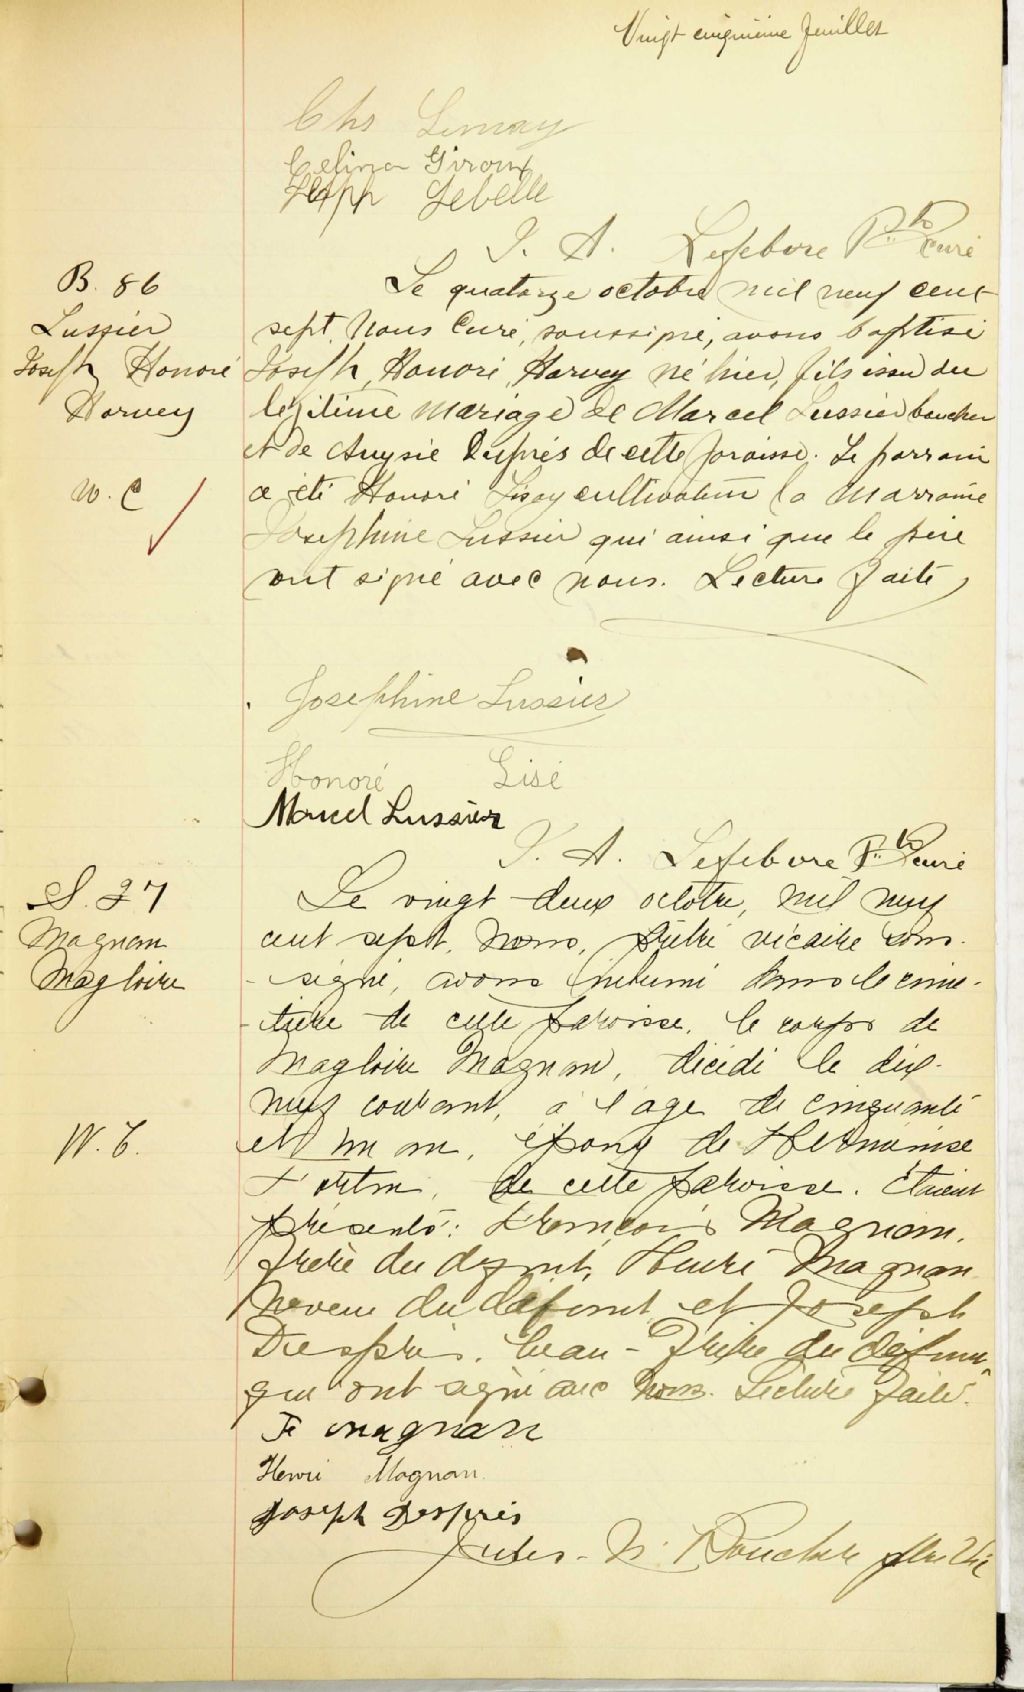 Vingt cinquième feuillet
Chs Lemay
Celina Giroux
Lebelle
J. A. Lefebvre Ptre Curé
B. 86
Lussier
Joseph Honoré
Harvey
W. C
Le quatorze octobre mil neuf cent
sept, Nous Curé, soussigné, avons baptisé
Joseph, Honoré, Harvey né hier, fils issu du
légitime mariage de Marcel Lussier boucher
et de Després de cette paroisse. Le parrain
a été Honoré Lisay cultivateur la marraine
Josephine Lussier qui ainsi que le père
ont signé avec nous. Lecture faite
Josephine Lussier
Honoré Lisé
Marcel Lussier
J. A. Lefebvre Ptre Curé
S. 27
Magnan
Magloire
W. C.
Le vingt-deux octobre, mil neuf
cent sept, Nous, prêtre vicaire sous-
signé, avons inhumé dans le cime-
tière de cette paroisse, le corps de
Magloire Magnan, décédé le dix-
neuf courant, à l'age de cinquante
et un an, époux de Herménise
Fortin, de cette paroisse. Etaient
présents: François Magnan,
frère du défunt, Henri Magnan
neveu du défunt et Joseph
Després, beau-frère du défunt,
qui ont signé avec nous. Lecture faite.
F. magnan
Henri Magnan
Joseph Desprès
Jules-N. Ptre Vic